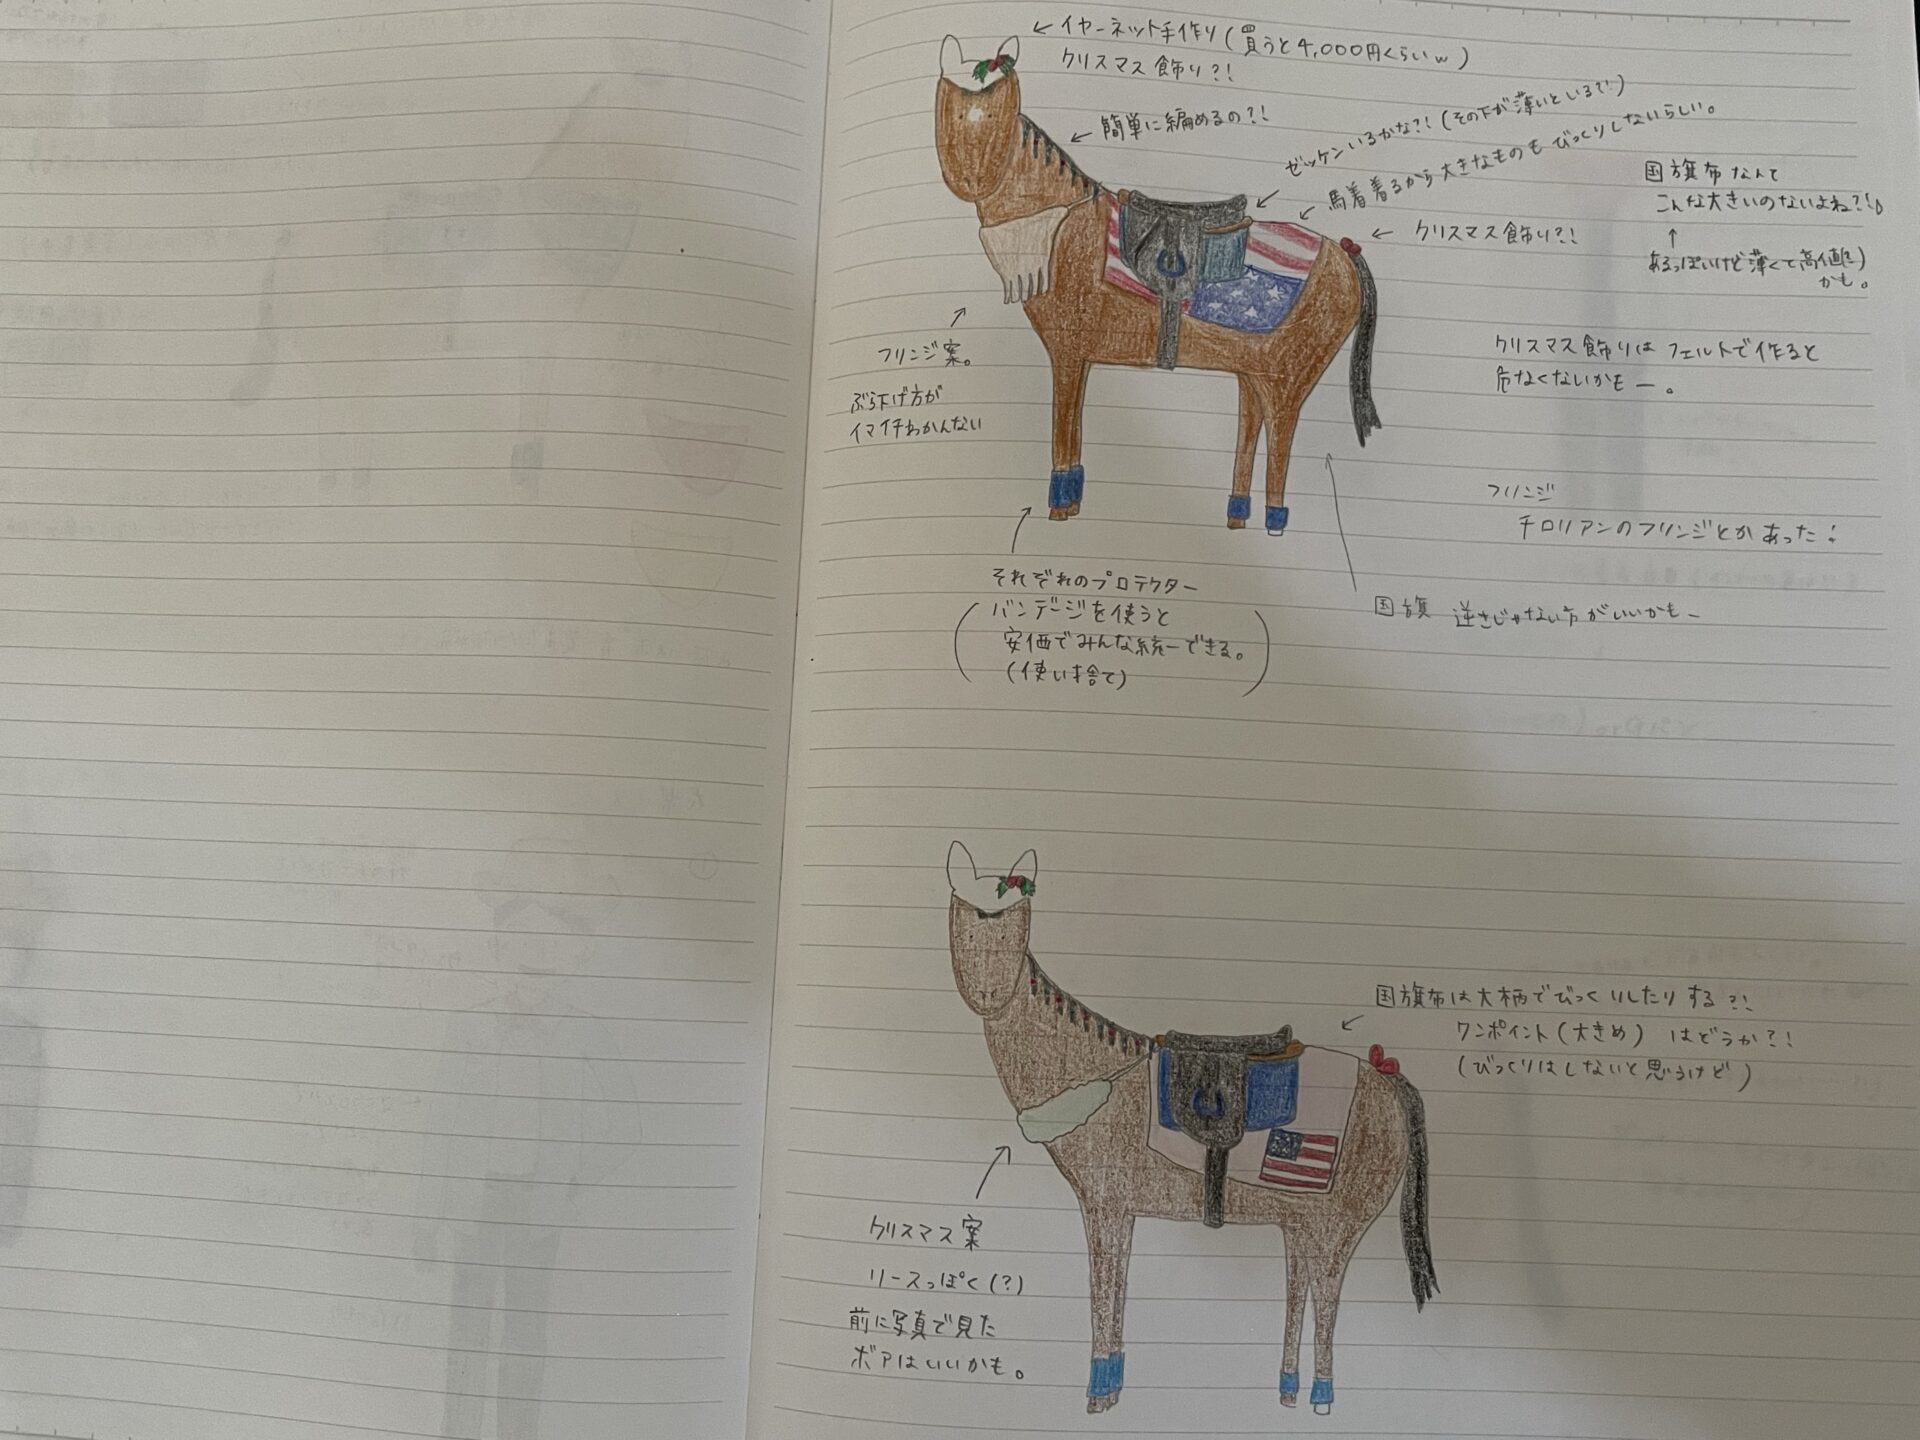 ← イヤーネット手作り(買うと4,000円くらいw)
クリスマス飾り?!
← 簡単に編めるの?!
ゼッケンいるかな?!(その下が薄いといるで)
馬着着るから大きなものもびっくりしないらしい。
← クリスマス飾り?!
国旗布なんて
こんな大きいのないよね?!
↑
あるっぽいけど薄くて高値
かも。
フリンジ案。
ぶら下げ方が
イマイチわかんない
クリスマス飾りはフェルトで作ると
危なくないかもー。
フリンジ
チロリアンのフリンジとかあった!
それぞれのプロテクター
(バンデージを使うと
安価でみんな統一できる。
(使い捨て))
国旗 逆さじゃない方がいいかもー
国旗布は大柄でびっくりしたりする?!
ワンポイント(大きめ)はどうか?!
(びっくりはしないと思うけど)
クリスマス案
リースっぽく(?)
前に写真で見た
ボアはいいかも。